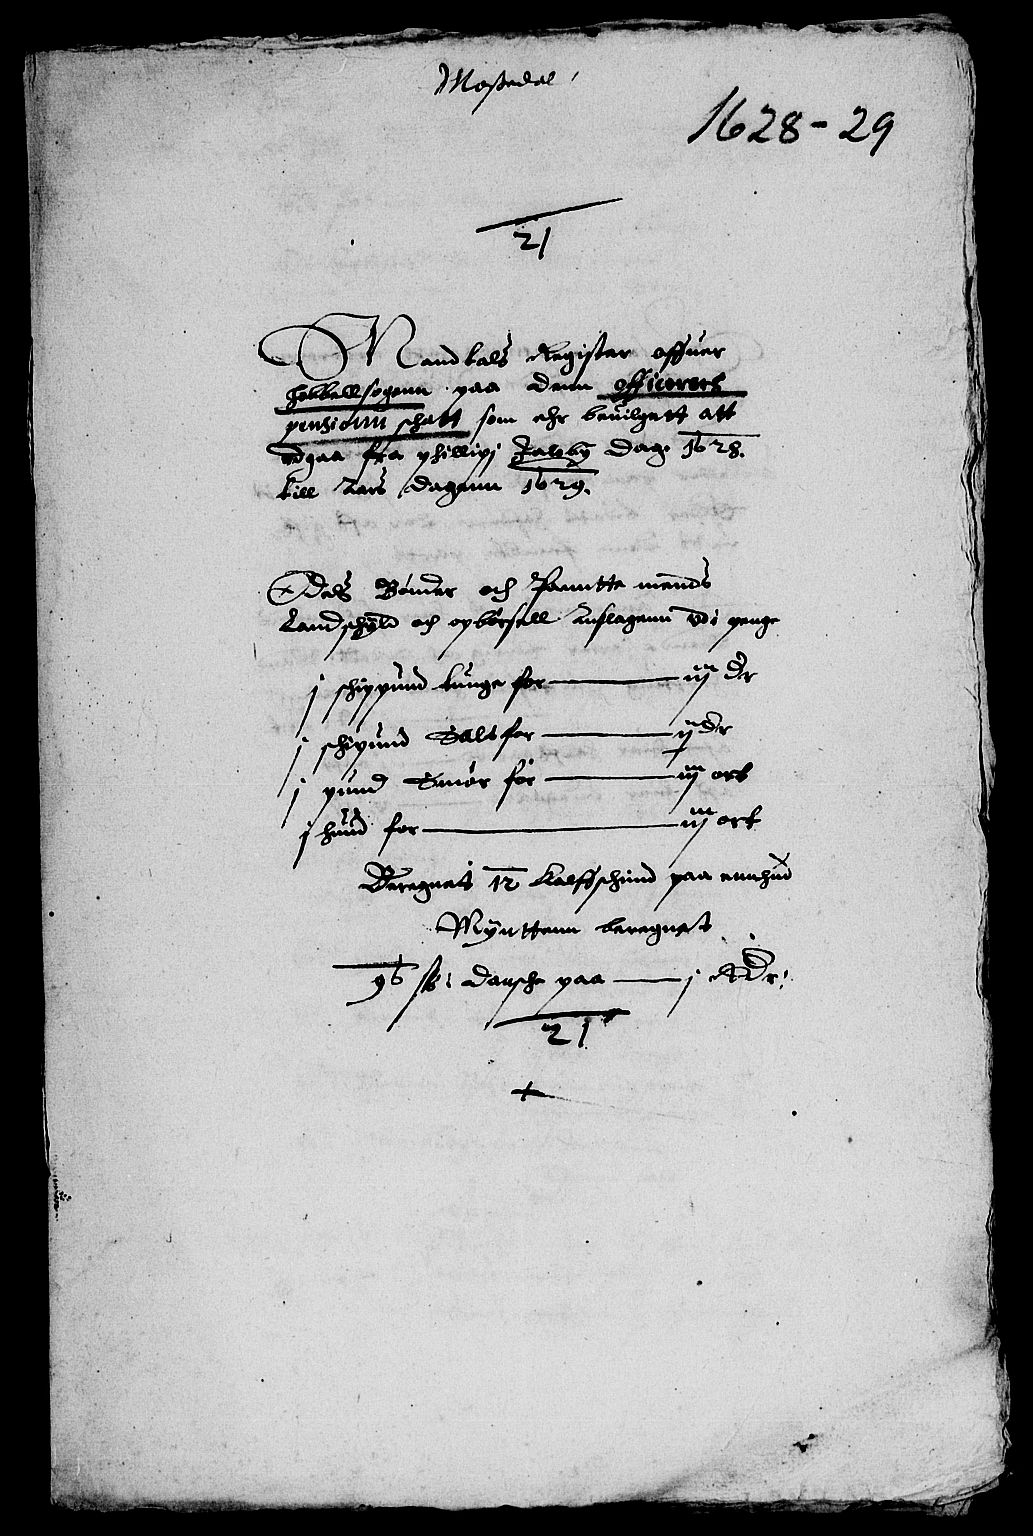 Mossedal
1628-29
21
Mandtals Register offuer
paa denn officerers
pensionn schatt som ehr beuilgett att
vdgaa fra phillipi Jakoby dag: 1628.
till Aars dagenn 1629.
Odels Bønder och Panntte mends
Landschyld och opbørsell Anslagenn vdi penge
j schippund tunge for — iiij dr
j schipund Salt for — ij dr
j pund Smør for — iiij ort
j hund for — iiij ort
Beregnets 12 kalfschind paa enn hud
Mynttenn beregnet
96 sk: dansche paa — j Rdr:
21
+